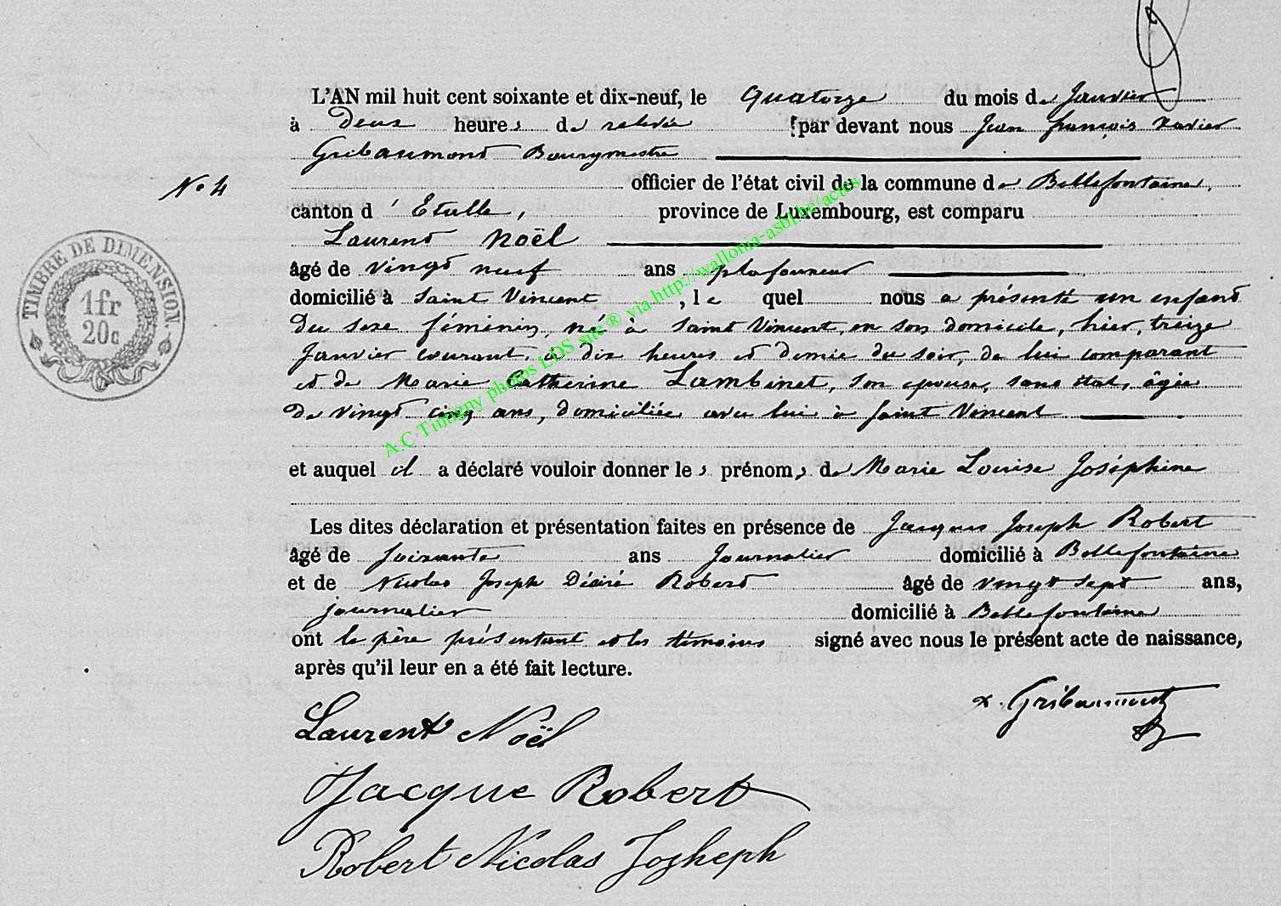 L'AN mil huit cent soixante et dix-neuf, le quatorze du mois de Janvier
à deux heures de relevée par devant nous Jean françois xavier
Gribaumont Bourgmestre
officier de l'état civil de la commune de Bellefontaine,
N° 4
canton d'Etalle, province de Luxembourg, est comparu
Laurent Noël
âgé de vingt neuf ans plafonneur
domicilié à Saint Vincent, le quel nous a présenté un enfant
du sexe féminin, né à Saint Vincent, en son domicile, hier, treize
Janvier courant, à dix heures et demie du soir, de lui comparant
et de Marie Catherine Lambinet, son épouse, sans état, âgée
de vingt cinq ans, domiciliée avec lui à Saint Vincent
et auquel il a déclaré vouloir donner les prénoms de Marie Louise Joséphine
Les dites déclaration et présentation faites en présence de Jacques Joseph Robert
âgé de soixante ans Journalier domicilié à Bellefontaine
et de Nicolas Joseph Désiré Robert âgé de vingt sept ans,
journalier domicilié à Bellefontaine
ont le père présentant et les témoins signé avec nous le présent acte de naissance,
après qu'il leur en a été fait lecture.
x. Gribaumont
Laurent Noël
Jacque Robert
Robert Nicolas Jogheph
TIMBRE DE DIMENSION.
1fr
20c
A.C Tintigny photos LDS site ® via http://wallonia-asbl.be/actes